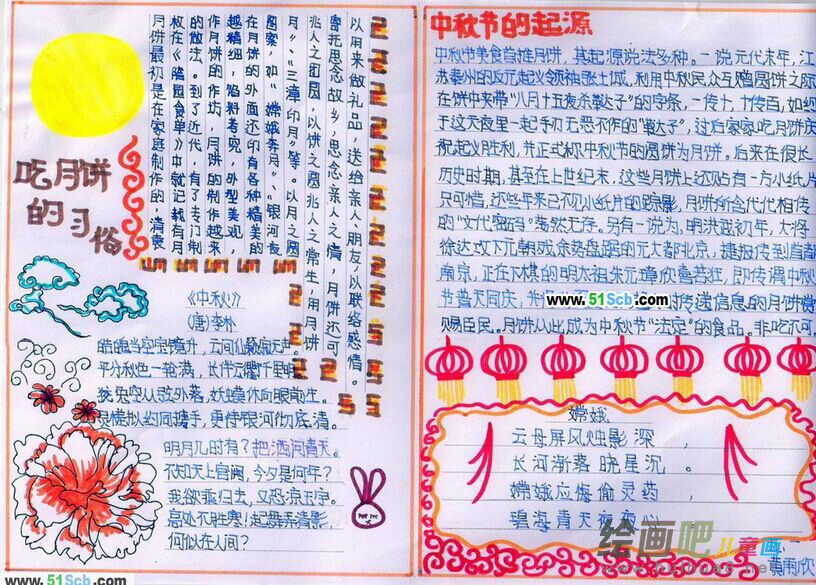 吃月饼
的习俗
月饼最初是在家庭制作的，清袁
枚在《隨园食单》中就记载有月
饼的做法。到了近代，有了专门制
作月饼的作坊，月饼的制作越来
越精细，馅料考究，外型美观，
在月饼的外面还印有各种精美的
图案，如“嫦娥奔月”、“银河夜
月”、“三潭印月”等。以月之圆
兆人之团圆，以饼之圆兆人之常生，用月饼
寄托思念故乡，思念亲人之情，月饼还可
以用来做礼品，送给亲人、朋友，以联络感情。
《中秋》
(唐)李朴
皓魄当空宝镜升，云间仙籁寂无声。
平分秋色一轮满，长伴云衢千里明。
狡兔空从弦外落，妖蟆休向眼前生。
灵槎拟约同携手，更待银河彻底清。
明月几时有？把酒问青天。
不知天上宫阙，今夕是何年？
我欲乘归去，又恐
高处不胜寒！起舞弄清影，
何似在人间？
中秋节的起源
中秋节美食首推月饼，其起源说法多种。一说元代末年，江
苏泰州的反元起义领袖张士诚，利用中秋民众互赠圆饼之际
在饼中夹带“八月十五夜杀鞑子”的字条，一传十，十传百，如约
于这天夜里一起手刃无恶不作的“鞑子”，过后家家吃月饼庆
祝起义胜利，并正式称中秋节的圆饼为月饼。后来在很长
历史时期，甚至在上世纪末，这些月饼上还贴有一方小纸片
只可惜，这些年来已不见小纸片的踪影，月饼所含代代相传
的“文代密码”荡然无存。另有一说为，明洪武初年，大将
徐达攻下元朝残余势盘踞的元大都北京，捷报传到首都
南京，正在下棋的明太祖朱元璋欣喜若狂，即传谕中秋
节普天同庆，并 传递信息的月饼赏
赐臣民。月饼从此成为中秋节“法定”的食品，非吃不可。
嫦娥
云母屏风烛影深，
长河渐落晓星沉。
嫦娥应悔偷灵药，
碧海青天夜夜心。
黄雨欣
www.51Scb.com
绘画吧
儿童画
www.51Scb.com